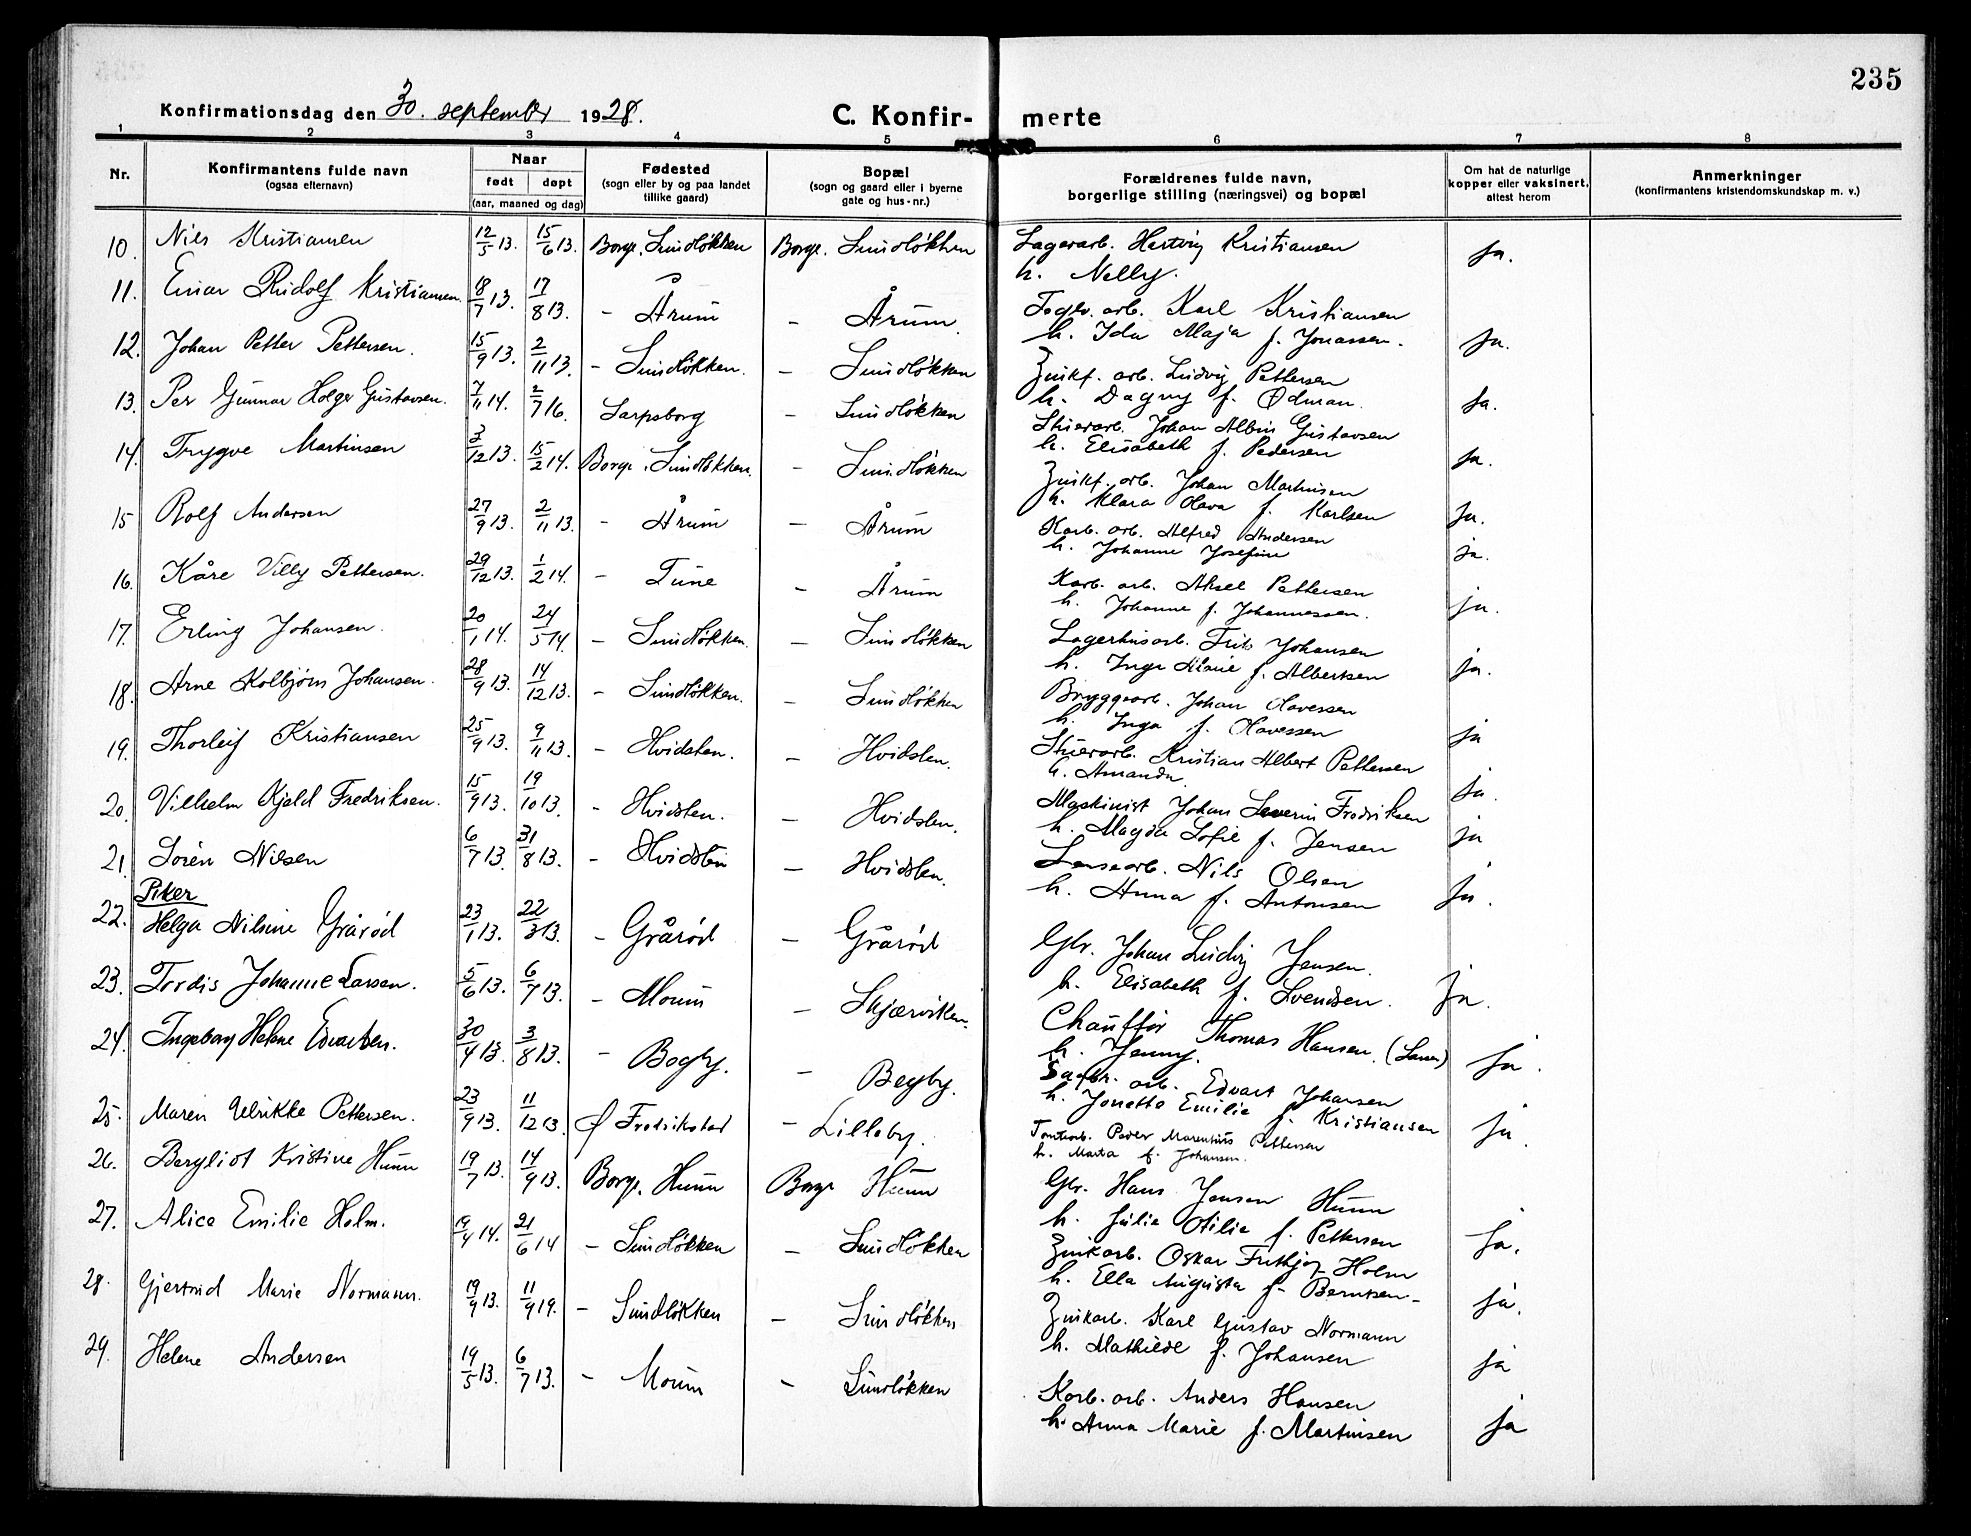 235
Konfirmationsdag den 30. september 1928.
C. Konfirmerte
1 2 3 4 5 6 7 8
Nr.
Konfirmantens fulde navn
(ogsaa efternavn)
Naar
født døpt
(aar, maaned og dag)
Fødested
(sogn eller by og paa landet
tillike gaard)
Bopæl
(sogn og gaard eller i byerne
gate og hus-nr.)
Forældrenes fulde navn,
borgerlige stilling (næringsvei) og bopæl
Om hat de naturlige
kopper eller vaksinert,
attest herom
Anmerkninger
(konfirmantens kristendomskundskap m. v.)
10. Nils Kristiansen 12/5 13. 15/6 13. Borge, Sundløkken Borge. Sundløkken Lagerarb. Hertvig Kristiansen
h. Nelly. Ja.
11. Einar Rudolf Kristiansen. 18/7 13. 17/8 13. - Årum - Årum. Teglv. arb. Karl Kristiansen
h. Ida Maja f. Jonassen. Ja.
12. Johan Petter Pettersen. 15/9 13. 2/11 13. - Sundløkken. - Sundløkken Zinkf. arb. Ludvig Pettersen
h. Dagny f. Ødman. Ja.
13. Per Gunnar Holger Gustavsen. 7/11 14. 2/7 16. Sarpsborg - Sundløkken Stuerarb. Johan Albin Gustavsen
h. Elisabeth f. Pedersen Ja.
14. Trygve Martinsen 3/12 13. 15/2 14. Borge. Sundløkken. - Sundløkken Zinkf. arb. Johan Martinsen
h. Klara Olava f. Karlsen Ja.
15 Rolf Andersen 27/9 13. 2/11 13. - Årum - Årum Karb. arb. Alfred Andersen
h. Johanne Josefine ja.
16. Kåre Villy Pettersen. 29/12 13. 1/2 14. - Tune - Årum Karb. arb. Aksel Pettersen
h. Johanne f. Johannessen. ja.
17. Erling Johansen. 20/1 14. 24/5 14. - Sundløkken. - Sundløkken Lagerhusarb. Frits Johansen
h. Inga Marie f. Albertsen ja.
18. Arne Kolbjørn Johansen. 28/9 13. 14/12 13. - Sundløkken. - Sundløkken Bryggearb. Johan Olavessen
h. Inga f. Olavessen ja
19. Thorleif Kristiansen 25/9 13. 9/11 13. - Hvidsten. - Hvidsten. Stuerarb. Kristian Albert Pettersen
h. Amanda ja.
20. Vilhelm Kjeld Fredriksen. 15/9 13. 19/10 13. - Hvidsten. - Hvidsten. Maskinist Johan Severin Fredriksen
h. Magda Sofie f. Jensen ja
21. Søren Nilsen 6/7 13. 31/8 13. - Hvidsten - Hvidsten. Lensearb. Nils Olsen
h. Anna f. Antonsen ja.
Piker
22. Helga Nilsine Grårød 23/1 13. 22/3 13. - Grårød - Grårød Gbr. Johan Ludvig Jensen.
h. Elisabeth f. Svendsen. Ja.
23. Tordis Johanne Larsen. 5/6 13. 6/7 13. - Moum - Skjærviken. Chauffør Thomas Hansen. (Larsen)
h. Jenny. Ja.
24. Ingeborg Helene Edvartsen. 30/4 13. 3/8 13. - Begby. - Begby. Sagbr. arb. Edvart Johansen
h. Jonette Emilie f. Kristiansen Ja.
25. Maren Ulrikke Pettersen. 23/9 13. 11/12 13. Ø Fredrikstad - Lilleby. Tomtearb. Peder Marentius Pettersen
h. Marta f. Johansen.
26. Bergliot Kristine Hunn 19/7 13. 14/9 13. Borge, Hunn Borge Hunn Gbr. Hans Jensen Hunn
h. Julie Otilie f. Pettersen Ja.
27. Alice Emilie Holm. 19/4 14. 21/6 14 - Sundløkken - Sundløkken Zinkarb. Oskar Frithjof Holm
h. Ella Augusta f. Berntsen. Ja.
28. Gjertrud Marie Normann. 19/9 13. 11/9 19. - Sundløkken - Sundløkken Zinkarb. Karl Gustav Normann
h. Mathilde f. Johansen ja
29. Helene Andersen 19/5 13. 6/7 13. - Moum - Sundløkken Karb. arb. Anders Hansen
h. Anna Marie f. Martinsen ja